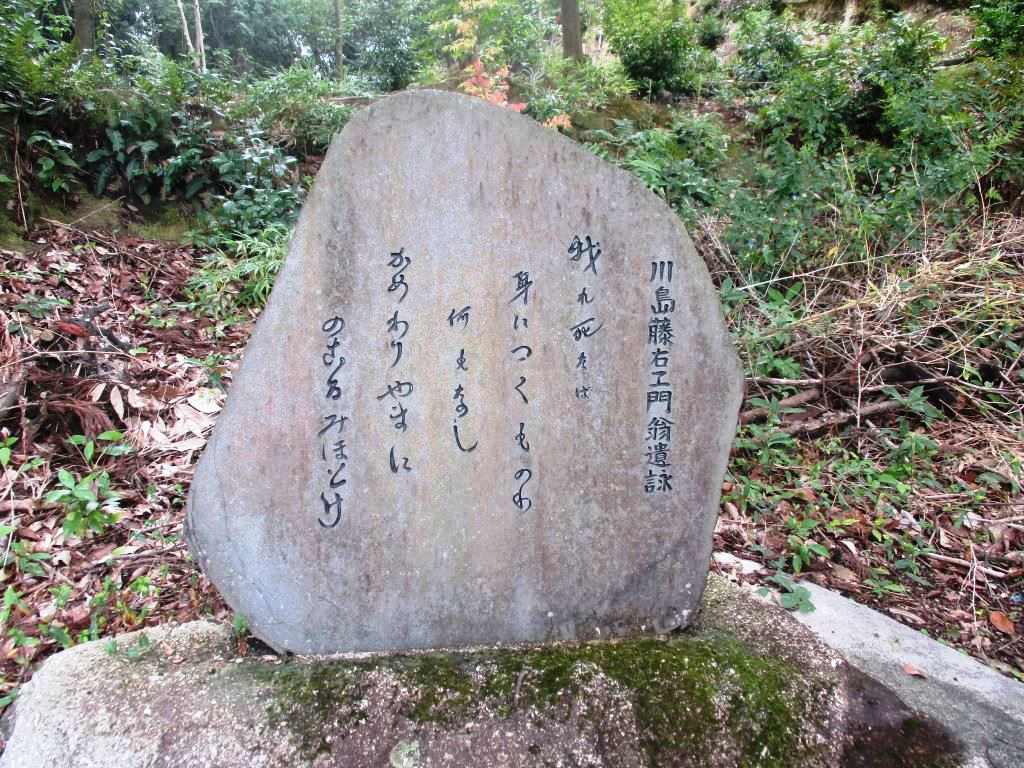 川島藤右エ門翁遺詠
我れ死なば
身につくものわ
何もなし
かめわりやまに
のこるみほとけ